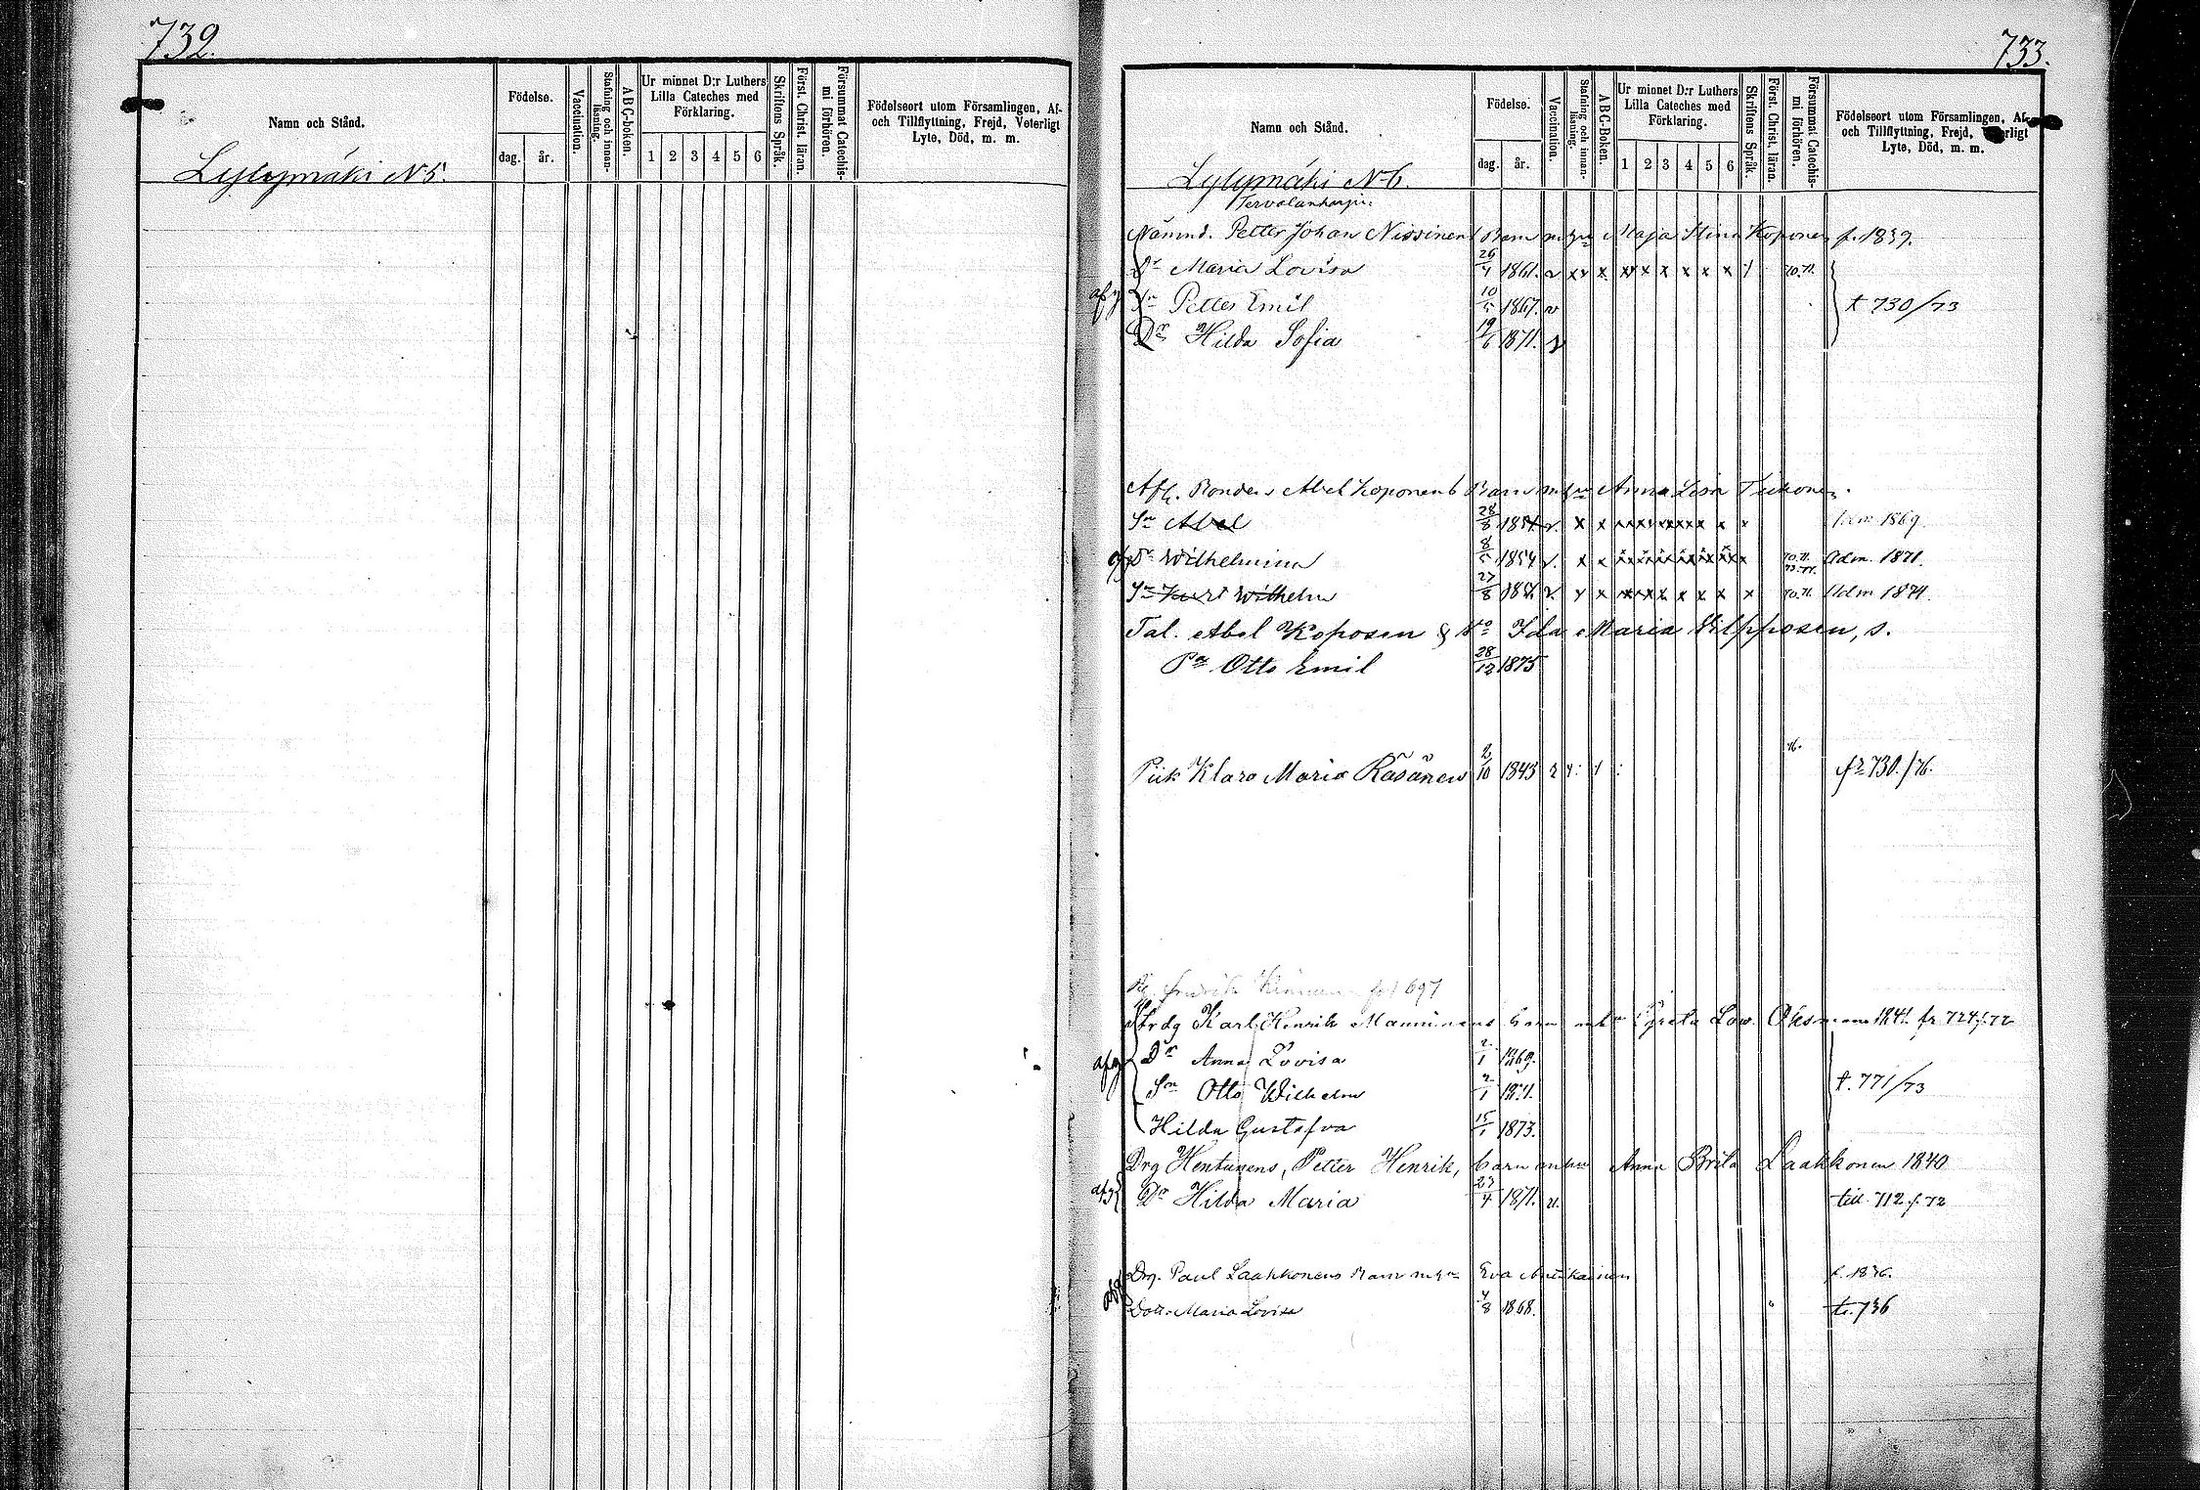 732.
Namn och Stånd.
Födelse.
dag.
år.
Vaccination.
Stafning och innanläsning.
ABC-boken.
Ur minnet D:r Luthers
Lilla Cateches med
Förklaring.
1 2 3 4 5 6
Skriftens Språk.
Först. Christ. läran.
Försummat Catechismi förhören.
Födelseort utom Församlingen, Af-
och Tillflyttning, Frejd, Veterligt
Lyte, Död, m. m.
Lylymäki N 5.
733.
Namn och Stånd.
Födelse.
dag.
år.
Vaccination.
Stafning och innanläsning.
ABC-Boken.
Ur minnet D:r Luthers
Lilla Cateches med
Förklaring.
1 2 3 4 5 6
Skriftens Språk.
Först. Christ. läran.
Försummat Catechismi förhören.
Födelseort utom Församlingen, Af-
och Tillflyttning, Frejd, Veterligt
Lyte, Död, m. m.
Lylymäki N 6.
Nämnd. Petter Johan Nissinens Barn m hu Maja Stina Koponen f. 1839.
Dr Maria Lovisa 26/4 1861. v x x x x x x x x 70.71.
afg Sn Petter Emil 10/5 1867. v t 730/73
Dr Hilda Sofia 19/6 1871. v
Afl. Bonden Abel Koponens Barn m hu Anna Lisa
Sn Abel 28/8 v. x x x x x x x x 1869.
afg Dr Wilhelmina 8/5 1854 v. x x x x x x x x x 70.71. Adm. 1871.
Sn Wilhelm 27/8 v. x x x x x x x x x 70.71. Adm 1874.
Tal. Abel Koposen & Ida Maria Vilpposen, s.
Pa Otto Emil 28/12 1875
76.
Piik Klara Maria Räsänen 2/10 1843 fr 730./76.
697
Karl Henrik Manninens barn m hu Greta Lov. fr 724/72
afg Dr Anna Lovisa 2/1 1869.
Sn Otto Wilhelm 2/1 1871. t. 771/73
Hilda Gustafva 15/1 1873.
Drg Hentunens, Petter Henrik, barn m hu Anna Brita Laakkonen 1840
afg Dr Hilda Maria 23/4 1871. v. till 712 /. 72
Drg. Paul Laakkonens Barn m hu Eva f. 1836.
afg Dottr Maria Lovisa 4/8 1868. t. 736